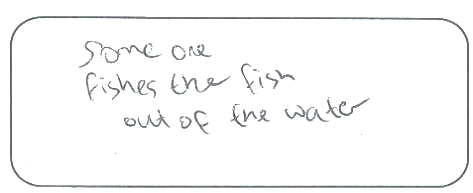 some one
fishes the fish
out of the water